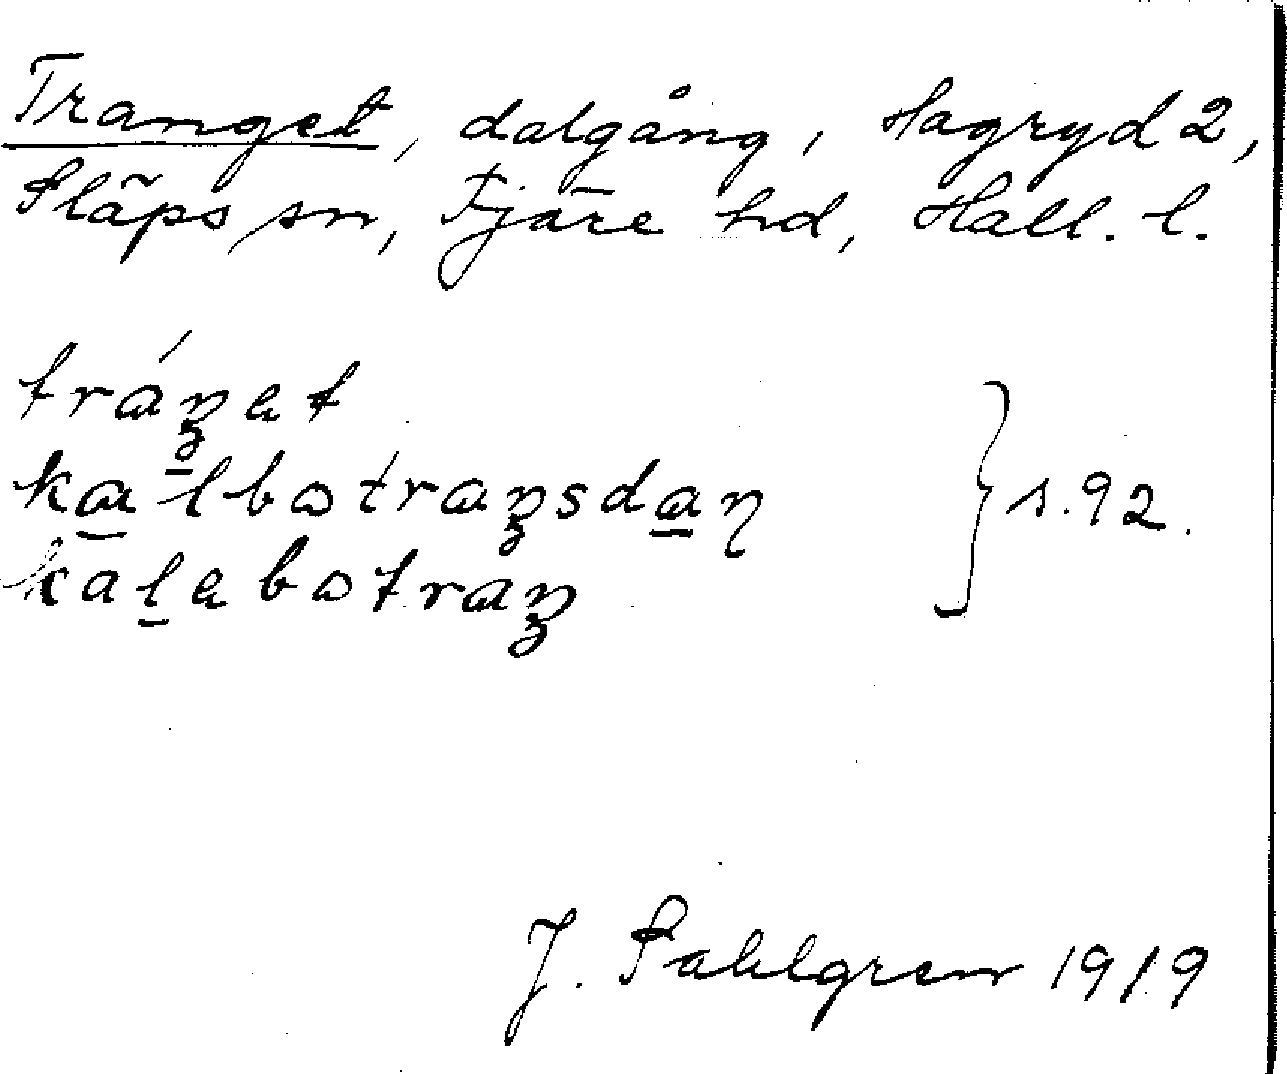 Tranget, dalgång, Hagryd 2,
Släps sn, Fjäre hd, Hall. l.
tráŋet
kalbotraŋsdaη } s. 92.
kalebotraŋ
J. Sahlgren 1919